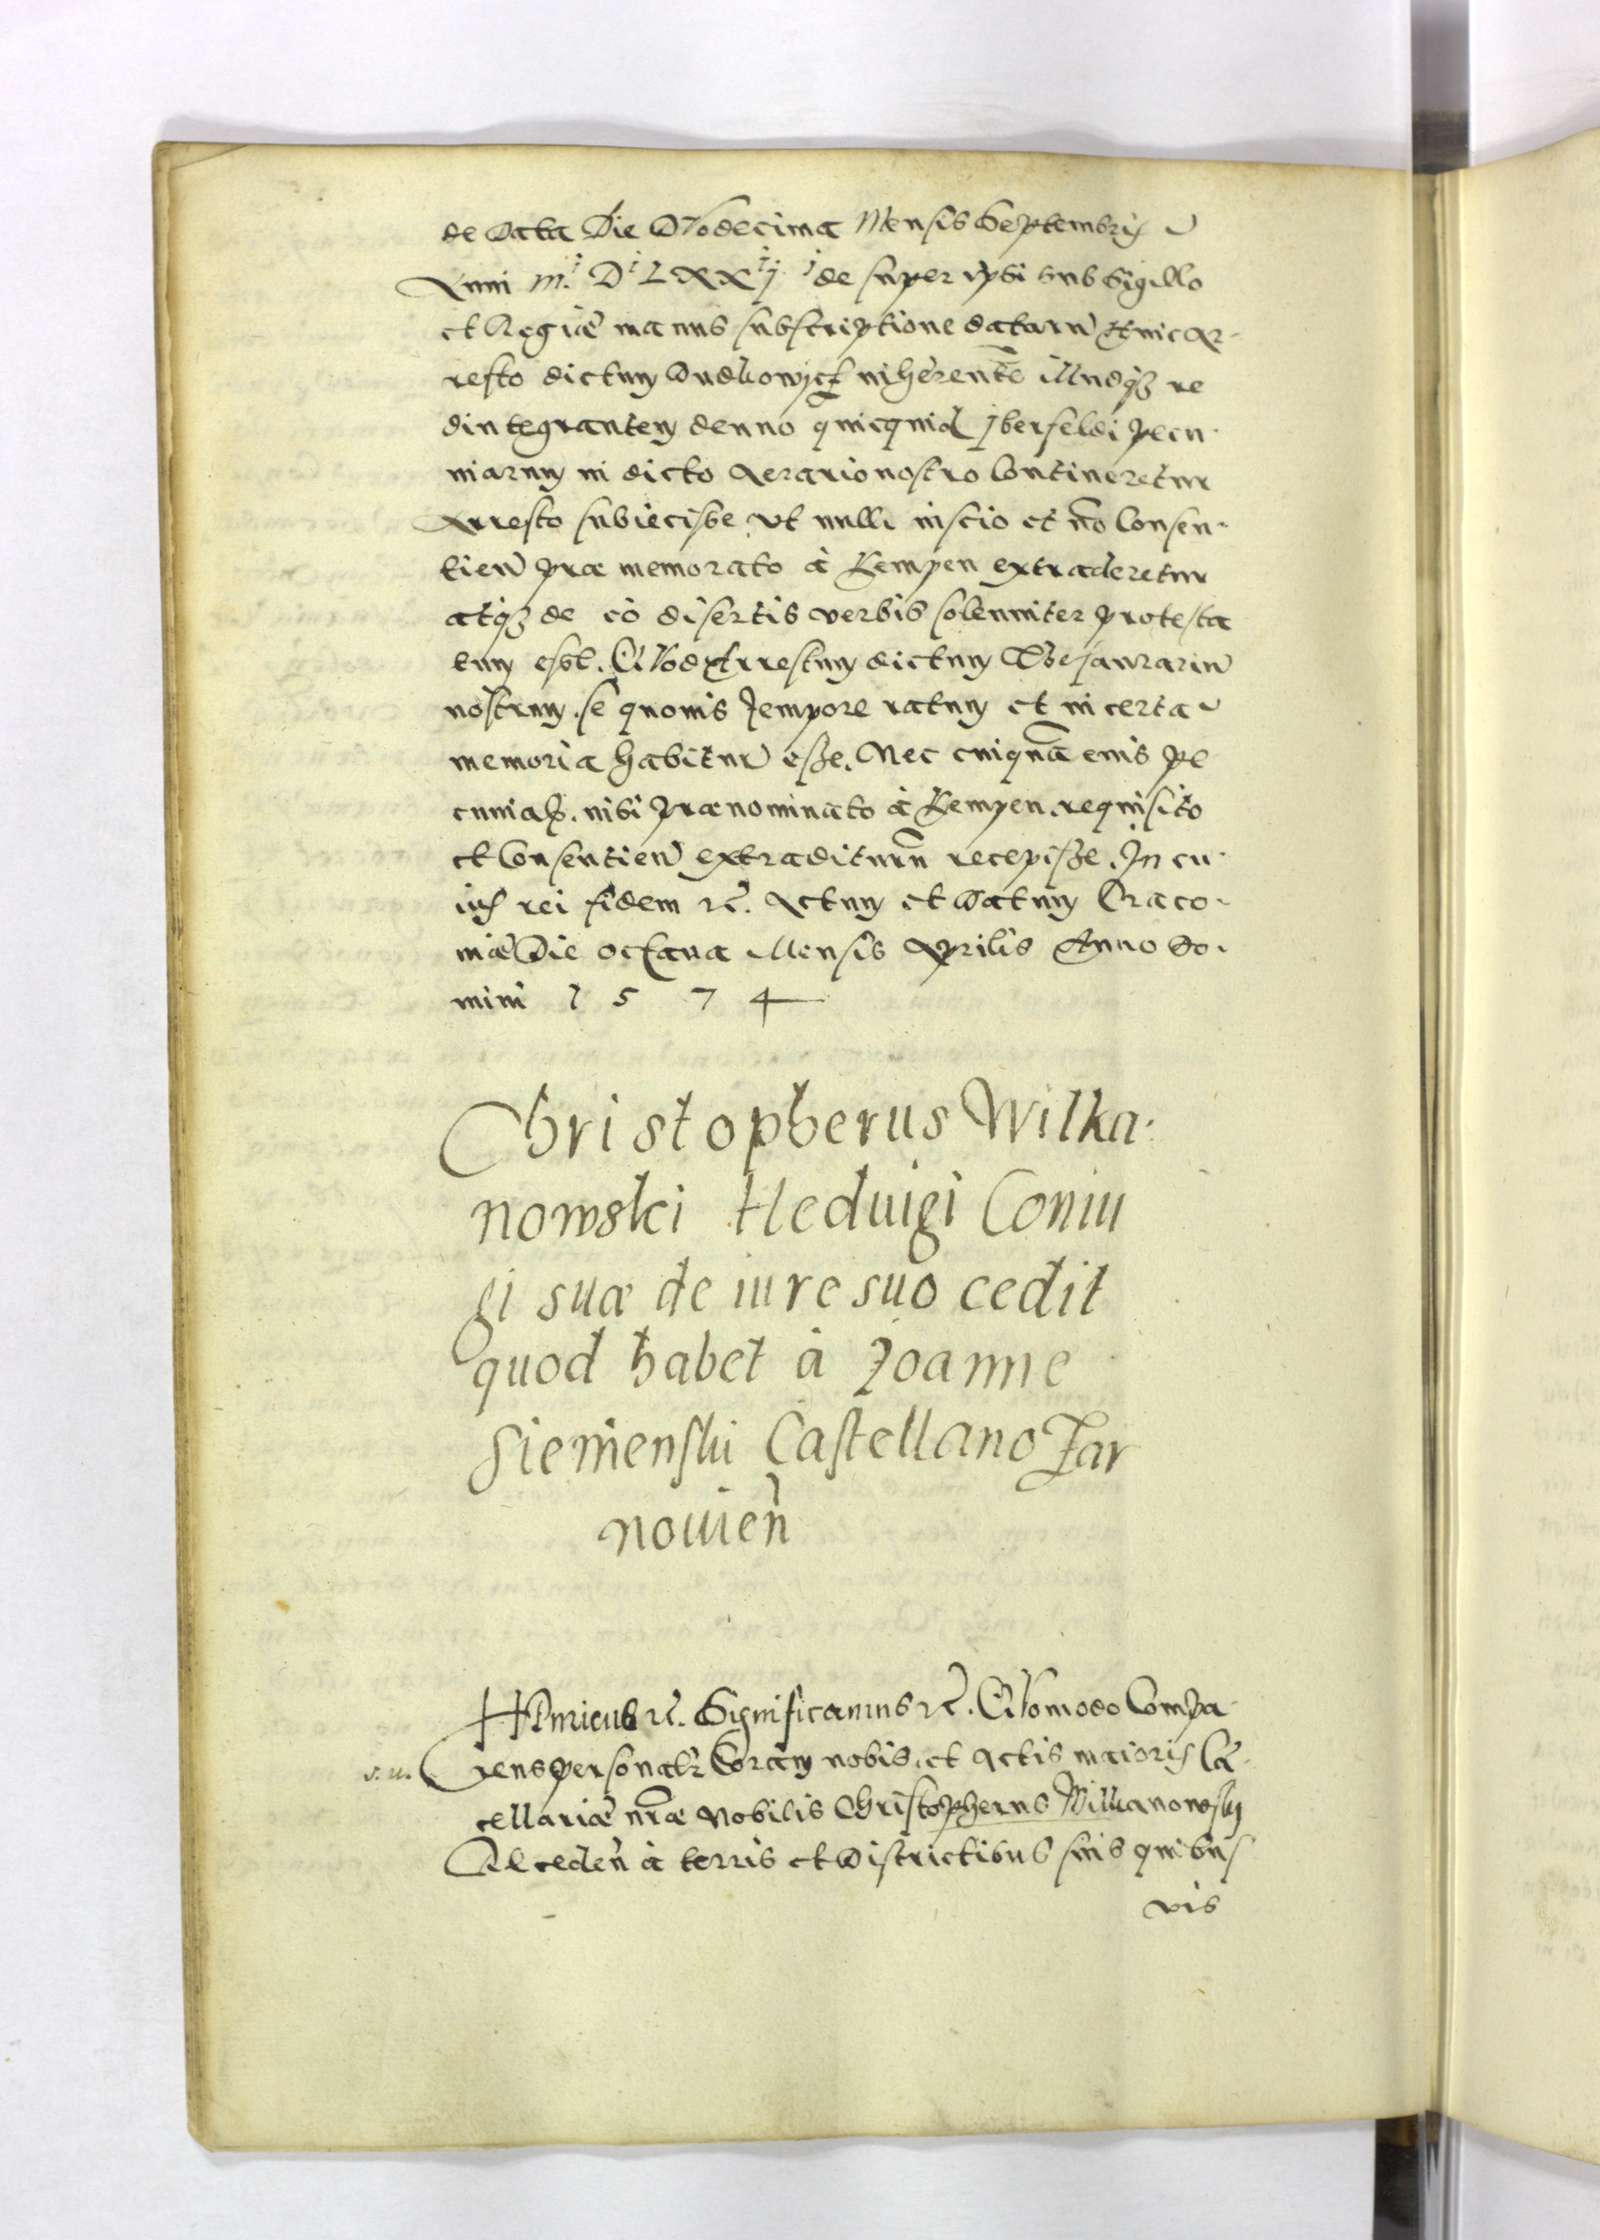 de Data Die Duodecima Mensis Septembris
Anni M. D. LXXIJ de super ipsi sub Sigillo
et Regiæ manus subscriptione datarũ huic Ar-
resto dictum Dudkowycz inhærentẽ illudq3 re
dintegrantem denuo quicquid Iberfeldi pecu-
niarum in dicto Aerario nostro Contineretur
Arresto subiecisse. Vt nulli inscio et nõ Consen-
tieñ præ memorato à Kempen extraderetur
atq3 de eò disertis verbis solenniter protesta
tum esse. Quod Arrestum dictum Thesaurariũ
nostrum. se quouis Tempore ratum et in certa
memoria habiturũ esse. Nec cuiquã eius pe
cunias. nisi prænominato à Kempen. requisito
et Consentieñ extraditurũ recepisse. In cu-
ius rei fidem &c. Actum et Datum Craco-
niæ Die octaua Mensis Aprilis Anno Do-
mini 1 5 7 4
Christopherus Wilka-
nowski Heduigi Coniu
gi suæ de iure suo cedit
quod habet à Joanne
Siemienski Castellano Zar
nouieñ
HEnricus &c. Significamus &c. Quomodo Compa-
s. u. rens personalr Coram nobis. et Actis maioris Cã-
cellariæ nræ Nobilis Christopherus Wilkanowsky
Recedeñ à terris et Districtibus suis quibus
vis